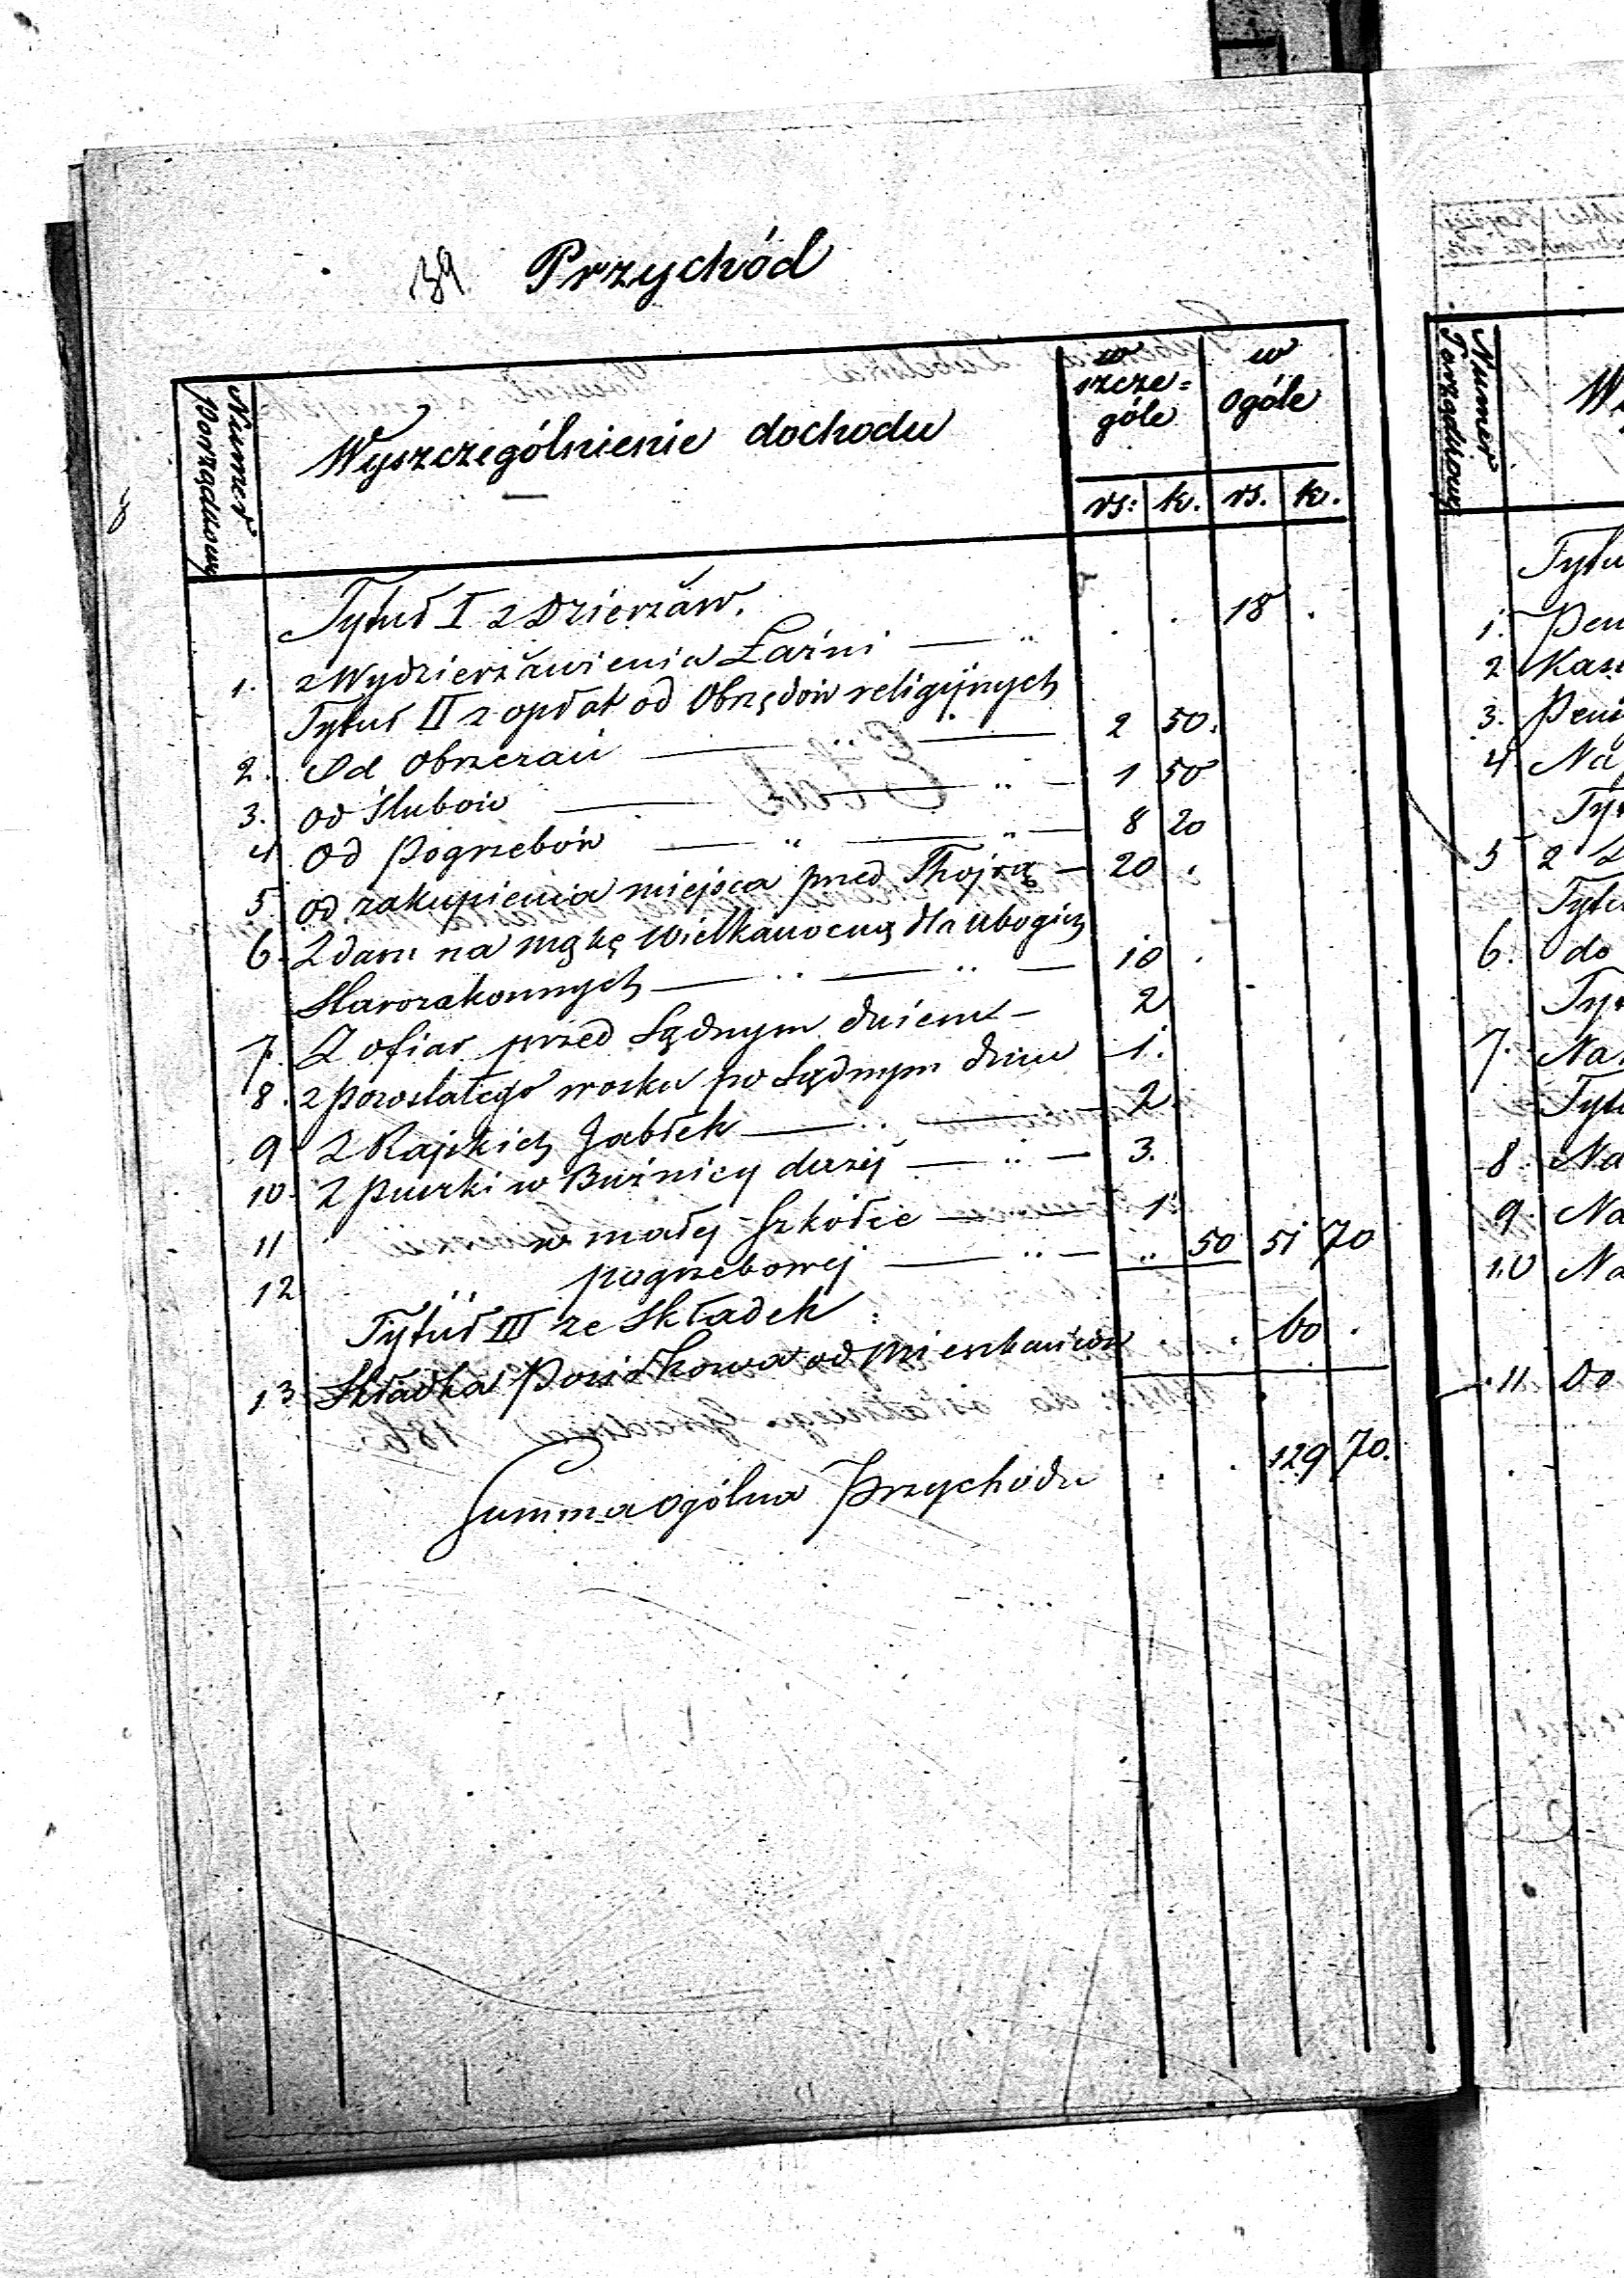 39 Przychód
Numer Porządkowy
Wyszczególnienie dochodu
w szcze=góle
w Ogóle
rs: k. rs. k.
Tytuł I z Dzierżaw.
1. z Wydzierżawienia Łaźni — „ . . 18 .
Tytuł II z opłat od Obrzędów religijnych
2. Od Obrzezań — 2 50.
3. od Ślubów — „ — 1 50
4 Od Pogrzebów — „ — „ — 8 20
5 od zakupienia miejsca przed Thojrą — 20 .
6. Z dani na mąkę Wielkanocną dla ubogich
Starozakonnych — „ — „ — 10 .
7. Z ofiar przed Sądnym dniem — 2
8. z pozostałego wosku po Sądnym dniu 1.
9 Z Rajskich Jabłek — „ — 2
10. Z puszki w Bużnicy dużej — „ — 3.
11 „ w małej Szkółce — 1
12 „ pogrzebowej — „ — „ 50 51 70
Tytuł III ze Składek
13 Składka Posiłkowa od Mieszkańców . . 60 .
Summa ogólna Przychodu . . 129 70.
Numer Porządkowy
1.
2
3.
4 Na
5 z
6. do
7.
8. Na
9. Na
10 Na
11 Do